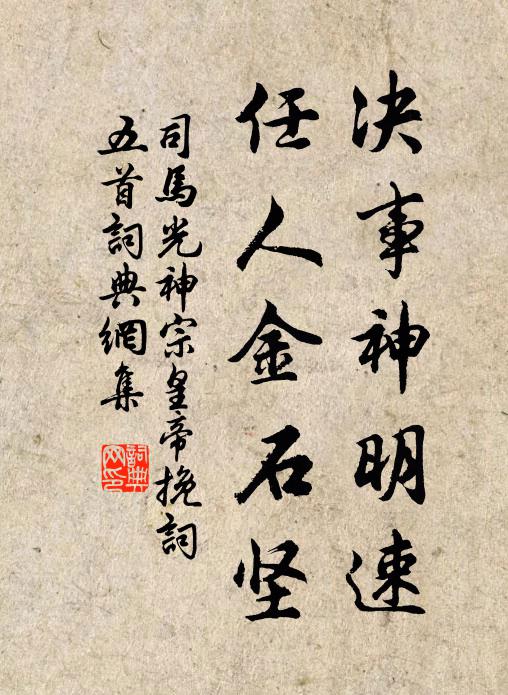 决事神明速
任人金石坚
司馬光神宗皇帝挽詞
五首詞典網集
詞典网印